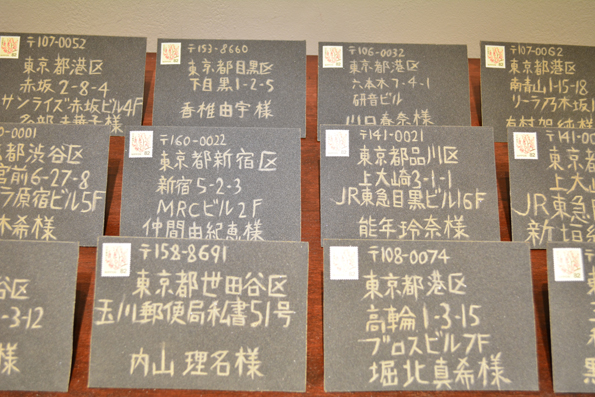 〒107-0052
東京都港区
赤坂2-8-4
サンライズ赤坂ビル4F
〒153-8660
東京都目黒区
下目黒1-2-5
香椎由宇様
〒106-0032
東京都港区
六本木7-4-1
研音ビル
川口春奈様
〒107-0062
東京都港区
南青山1-15-18
リーラ乃木坂
有村架純様
0001
都渋谷区
宮前6-27-8
ラ原宿ビル5F
木希様
〒160-0022
東京都新宿区
新宿5-2-3
MRCビル2F
仲間由紀恵様
〒141-0021
東京都品川区
上大崎3-1-1
JR東急目黒ビル16F
能年玲奈様
〒141-00
東京都
上大山
JR東急
新垣
谷区
-3-12
様
〒158-8691
東京都世田谷区
玉川郵便局私書51号
内山理名様
〒108-0074
東京都港区
高輪1-3-15
ブロスビル7F
堀北真希様
〒